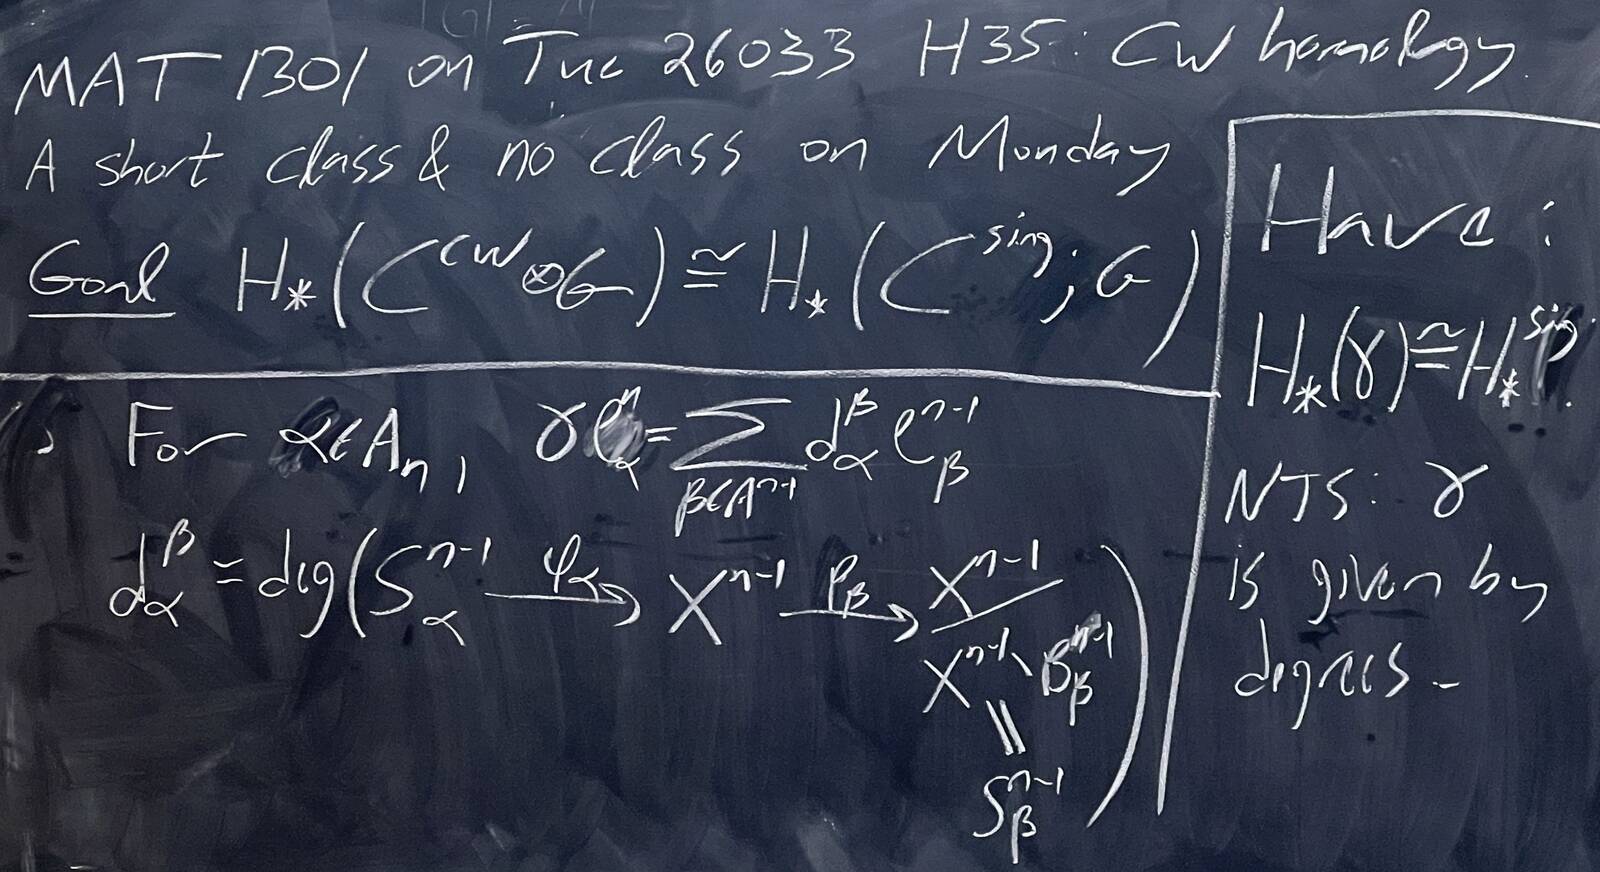 MAT 1301 on Tue 26033 H35: CW homology.
A short class & no class on Monday
Goal H_*(C^{CW}⊗G) ≅ H_*(C^{sing}; G)
For α∈A_n, γe^n_α = Σ_{β∈A^{n-1}} d^β_α e^{n-1}_β
d^β_α = deg(S^{n-1}_α →^{φ_α} X^{n-1} →^{p_β} X^{n-1} / X^{n-1}\B^{n-1}_β = S^{n-1}_β)
Have:
H_*(γ) ≅ H_*^{sing}.
NTS: γ
is given by
degrees.